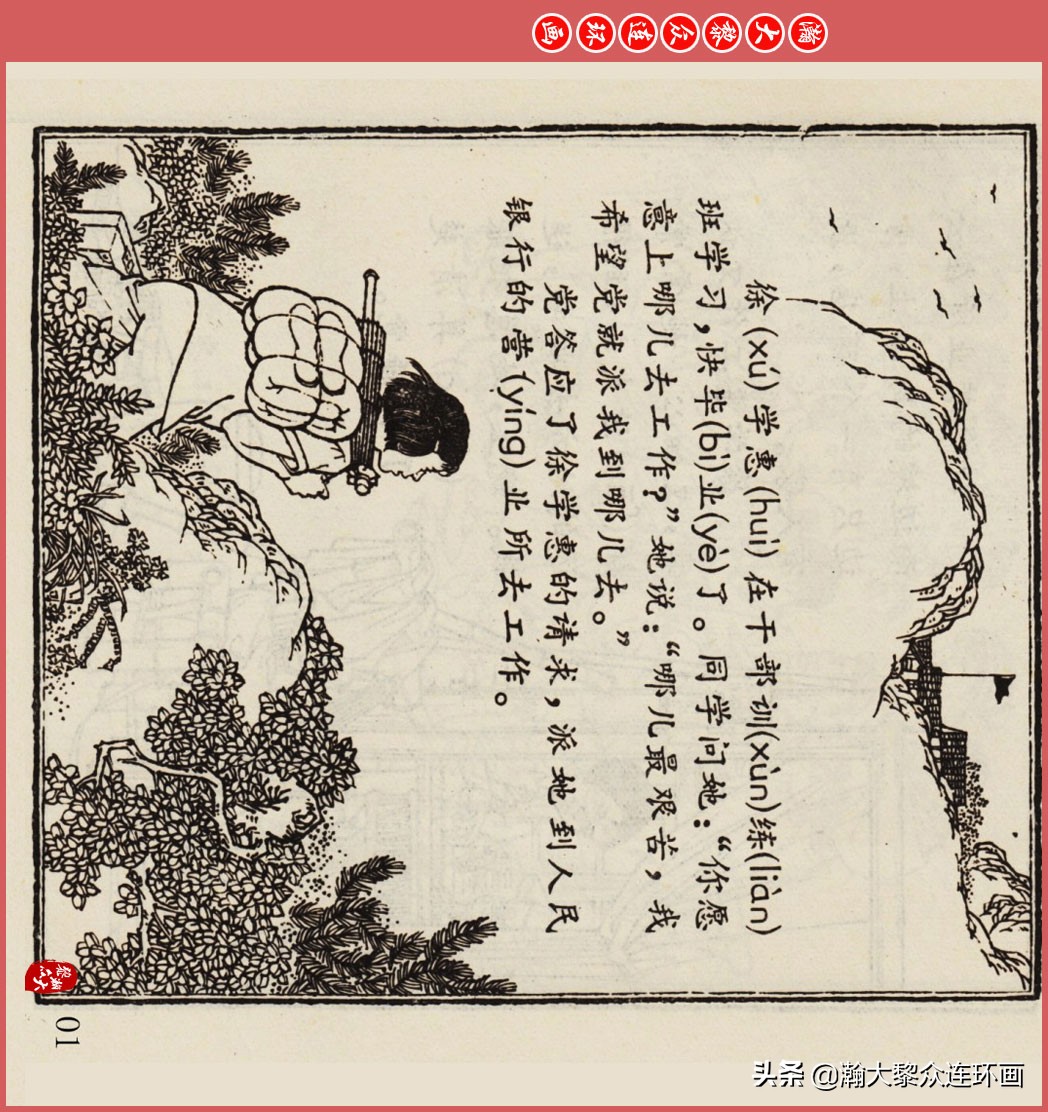 瀚大黎众连环画
徐(xú)学惠(huì)在干部训(xùn)练(liàn)
班学习,快毕(bì)业(yè)了。同学问她:“你愿
意上哪儿去工作?”她说:“哪儿最艰苦,我
希望党就派我到哪儿去。”
党答应了徐学惠的请求,派她到人民
银行的营(yíng)业所去工作。
01
头条 @瀚大黎众连环画